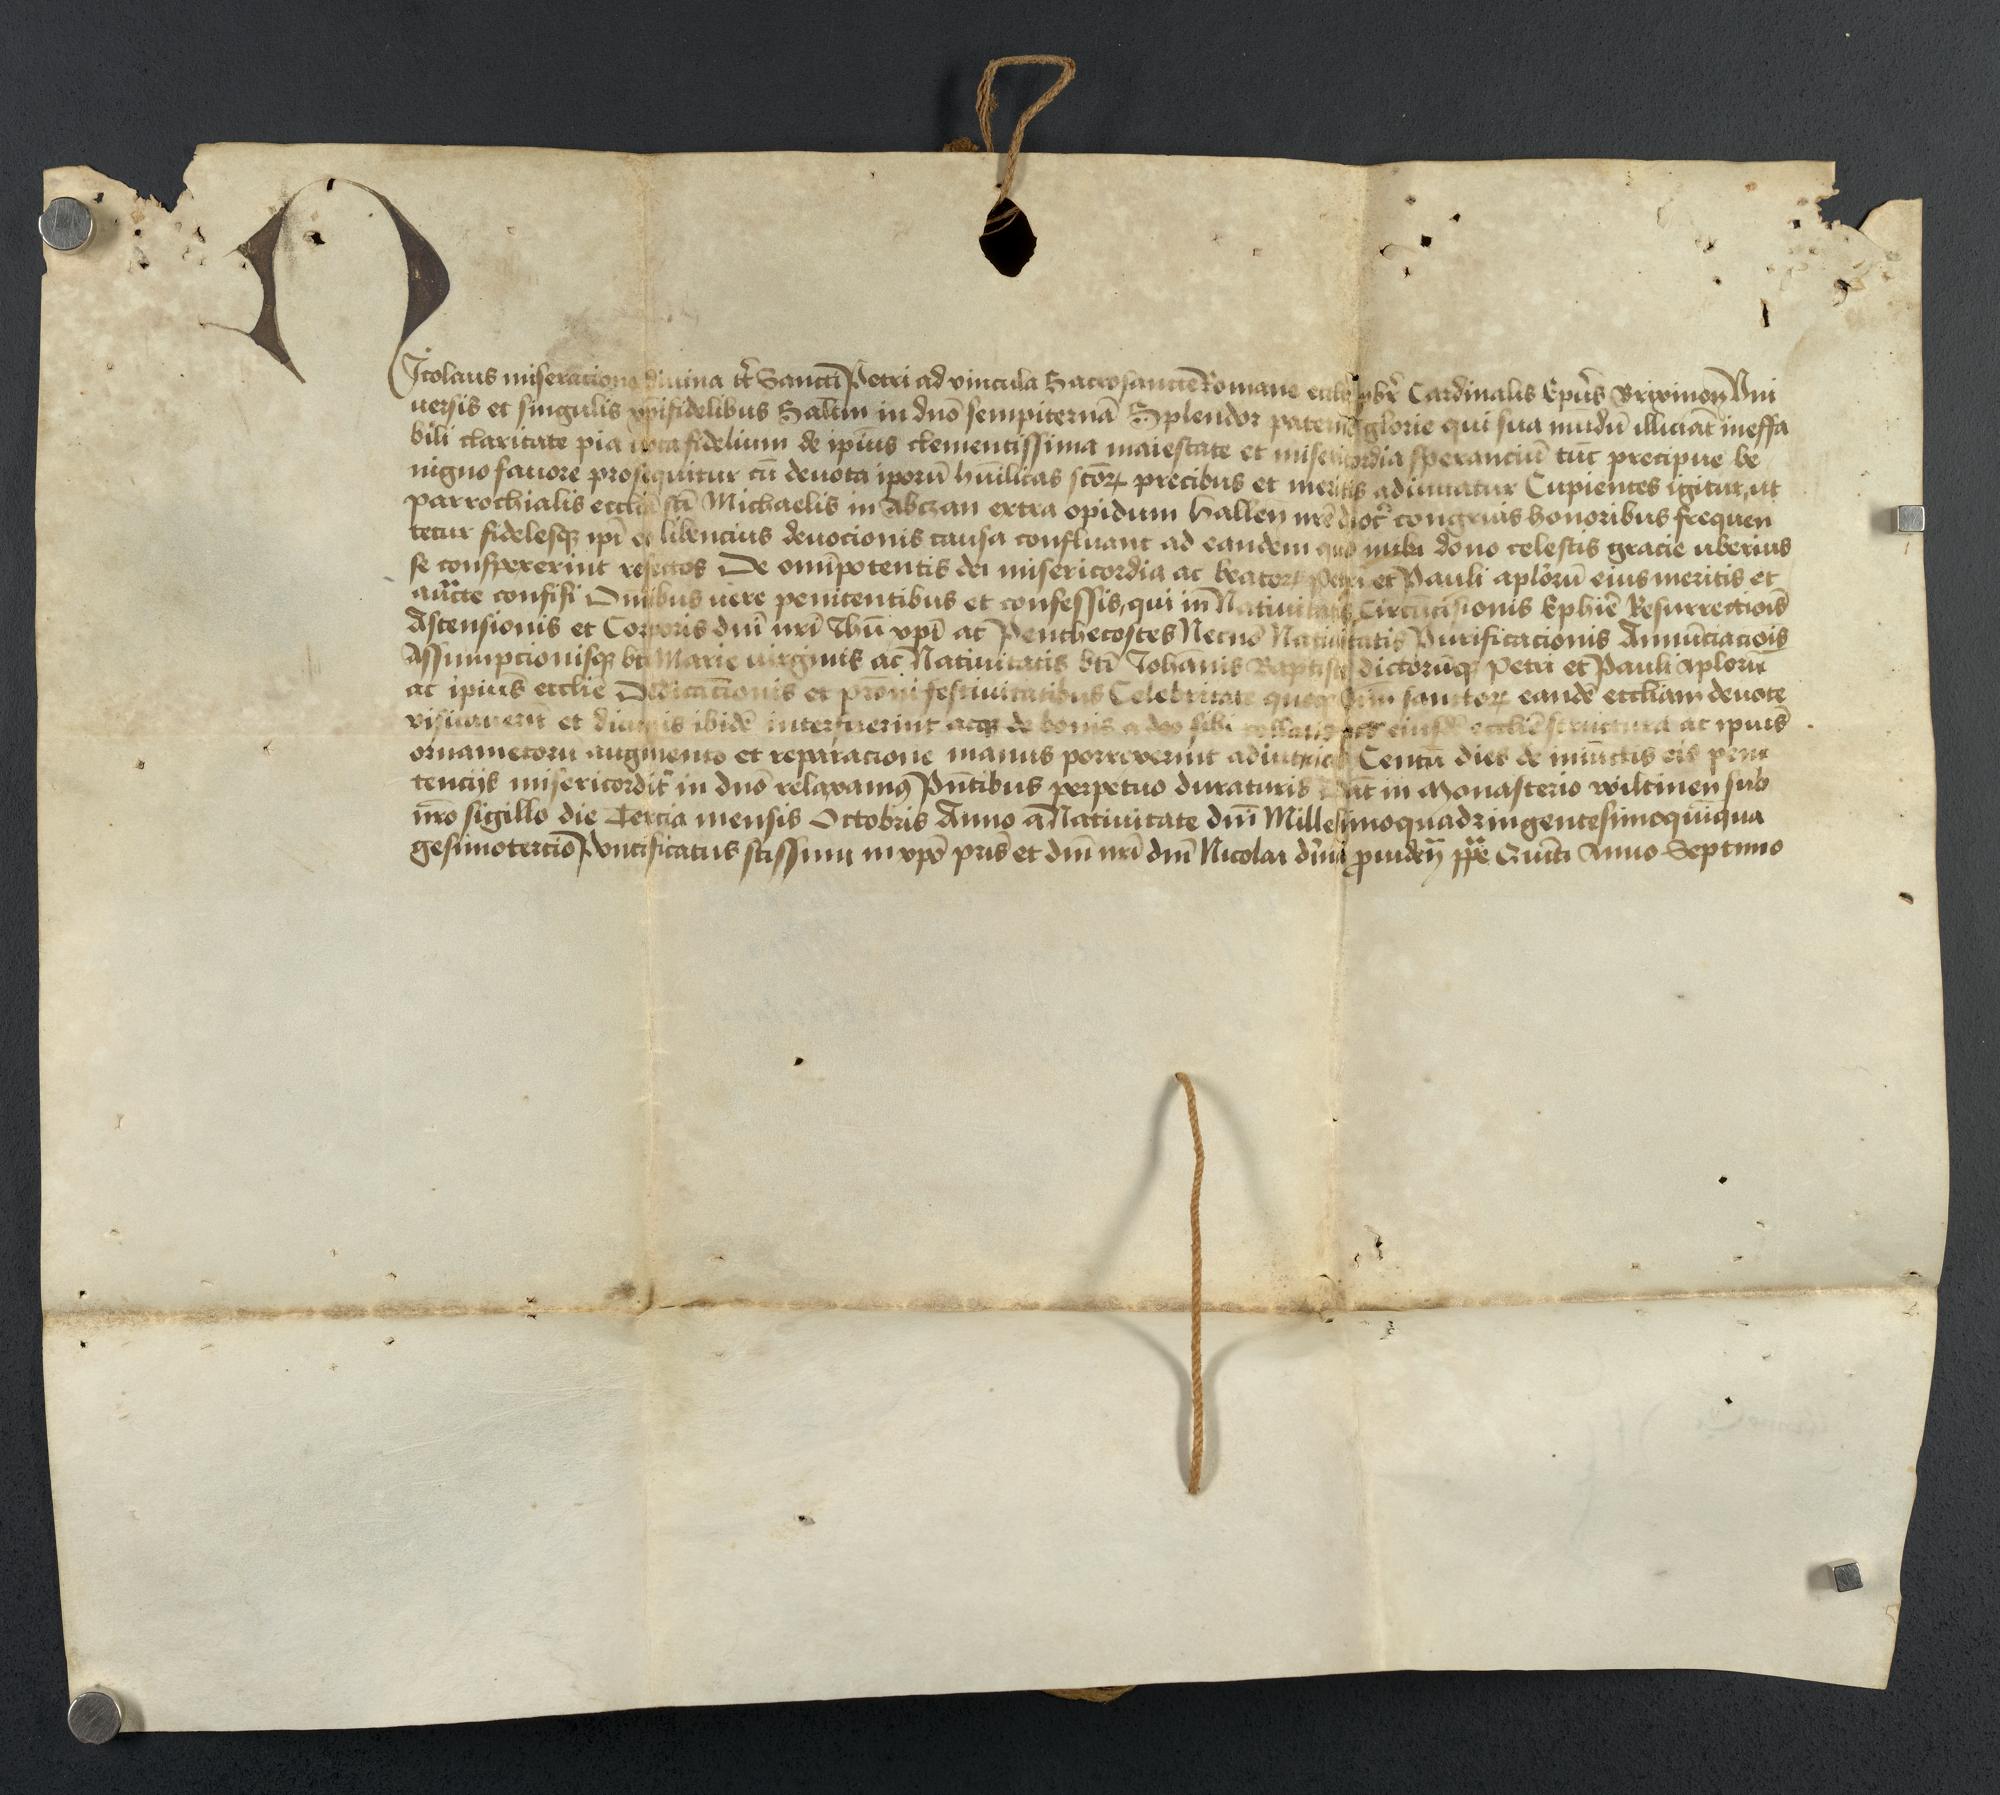 Nicolaus miseracione divina tt̄ Sancti Petri ad vincula Sacrosancte Romane eccl̄ie pb̄r Cardinalis Ep̄us Brixinen̄ Vni
uersis et singulis xp̄ifidelibus Salt̄m in dn̄o sempiternā Splendor paterne glorie qui sua mūdū illūiat ineffa
bili claritate pia uota fidelium de ip̄ius clementissima maiestate et misericordia speranciū tūc precipue be
nigno fauore prosequitur cū deuota ip̄orū hūilitas sc̄orꝝ precibus et meritis adiuuatur Cupientes igitur, ut
parrochialis ecclesia sc̄i Michaelis in Abczan extra opidum Hallen̄ nr̄e dioc̄ congruis honoribus frequen
tetur fidelesqꝫ ip̄i eo libencius deuocionis causa confluant ad eandem quo inibi dono celestis gracie uberius
se conspexerint refectos De om̄ipotentis dei misericordia ac beatorꝝ Petri et Pauli ap̄lorū eius meritis et
auc̄te confisi Omībus uere penitentibus et confessis, qui in Natiuitatis Circūcisionis Ep̄hie Resurrectiois̄
Ascensionis et Corporis dn̄i nr̄i Ih̄u xp̄i ac Penthecostes Necnō Natiuitatis Purificacionis Annūciaciois̄
Assumpcionisqꝫ bt̄e Marie uirginis ac Natiuitatis bt̄i Joh̄annis Baptiste dictorūqꝫ Petri et Pauli ap̄lorū
ac ip̄ius ecclie Dedicacionis et pr̄oni festiuitatibus Celebritate oīm sanctorꝝ eandē eccliam deuote
visitauerīt et diuinis ibidē interfuerint de bonis a deo sibi collatis eiusdē ecclie structura ac ip̄ius
ornamētorū augmento et reparacione manus porrexerint adiutrices Centū dies de iniūctis eis peni
tencijs misericordit̄ in dn̄o relaxamꝰ Pn̄tibus perpetuo duraturis Dat̄ in Monasterio Wiltinen̄ sub
nr̄o sigillo die Tercia mensis Octobris Anno a Natiuitate dn̄i Millesimoquadringentesimoquīqua
gesimotercio Pontificatus sc̄issimi in xp̄o pr̄is et dn̄i nr̄i dn̄i Nicolai diuīa prouiden̄ pp̄e Quīti Anno Septimo